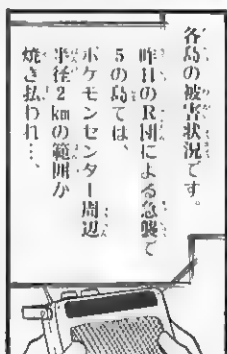 各島の被害状況です。
昨日のR団による急襲で
5の島では、
ポケモンセンター周辺
半径2kmの範囲が
焼き払われ…、